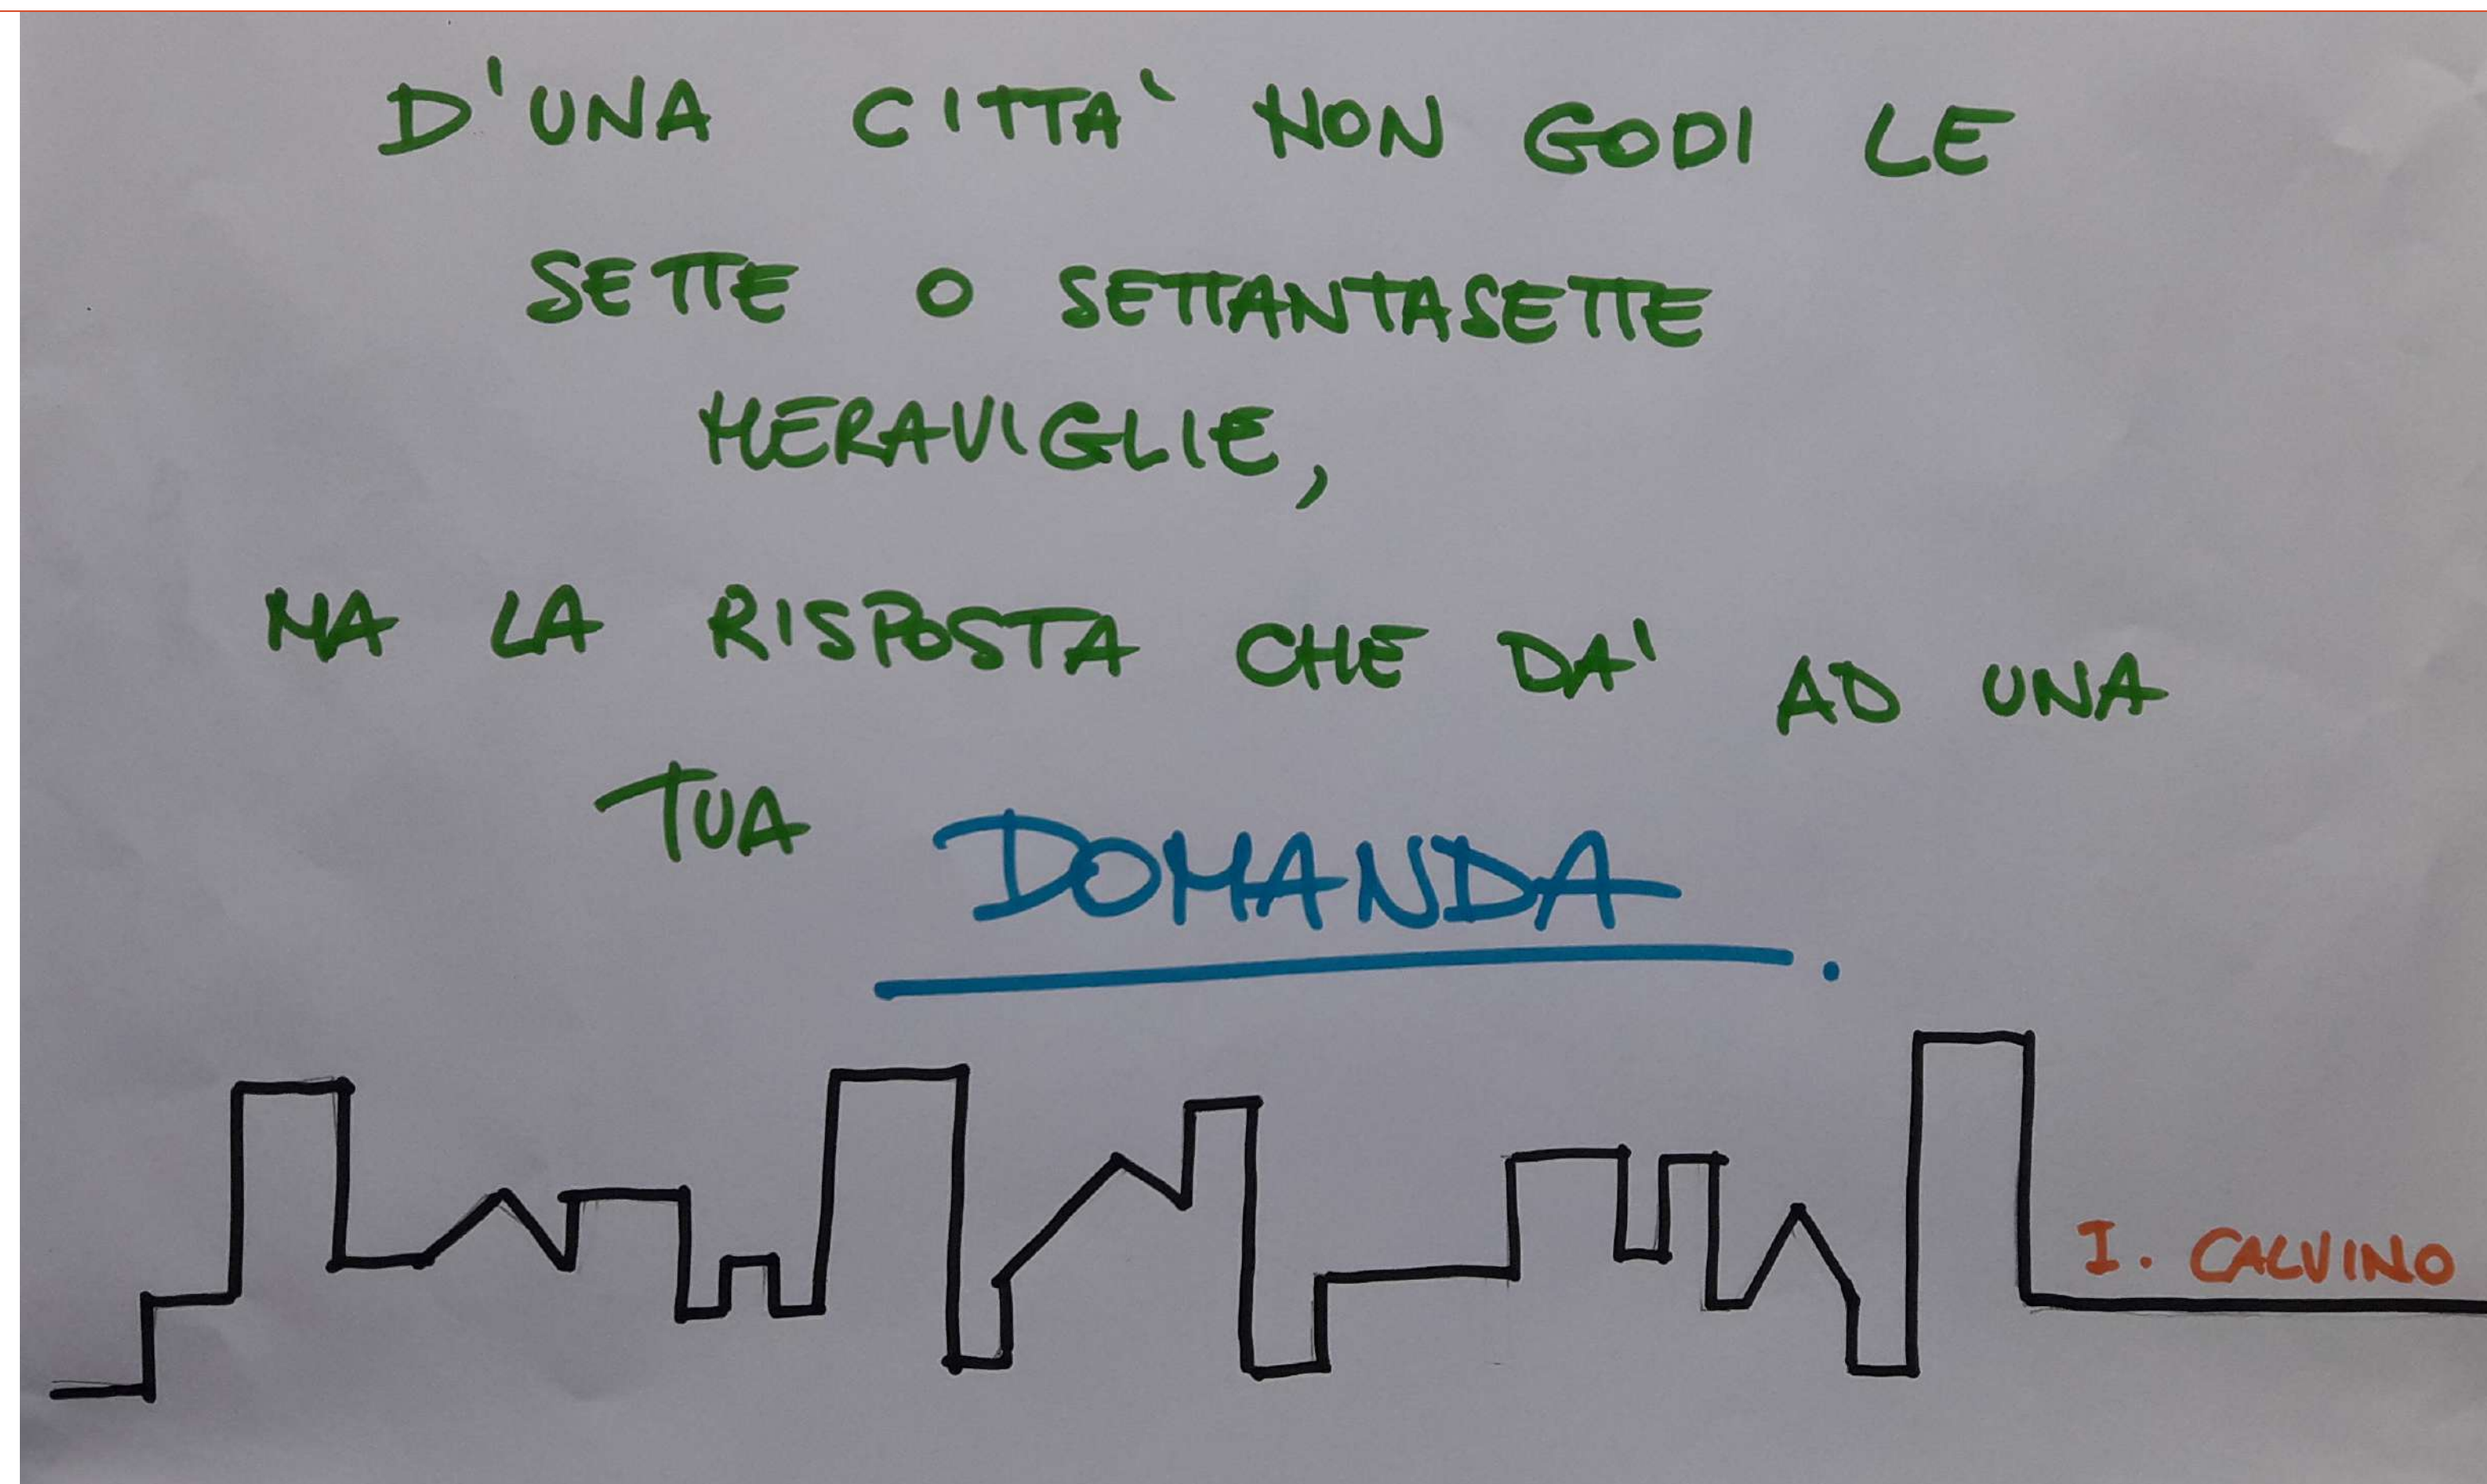 D'UNA CITTA' NON GODI LE
SETTE O SETTANTASETTE
MERAVIGLIE,
MA LA RISPOSTA CHE DA' AD UNA
TUA DOMANDA.
I. CALVINO